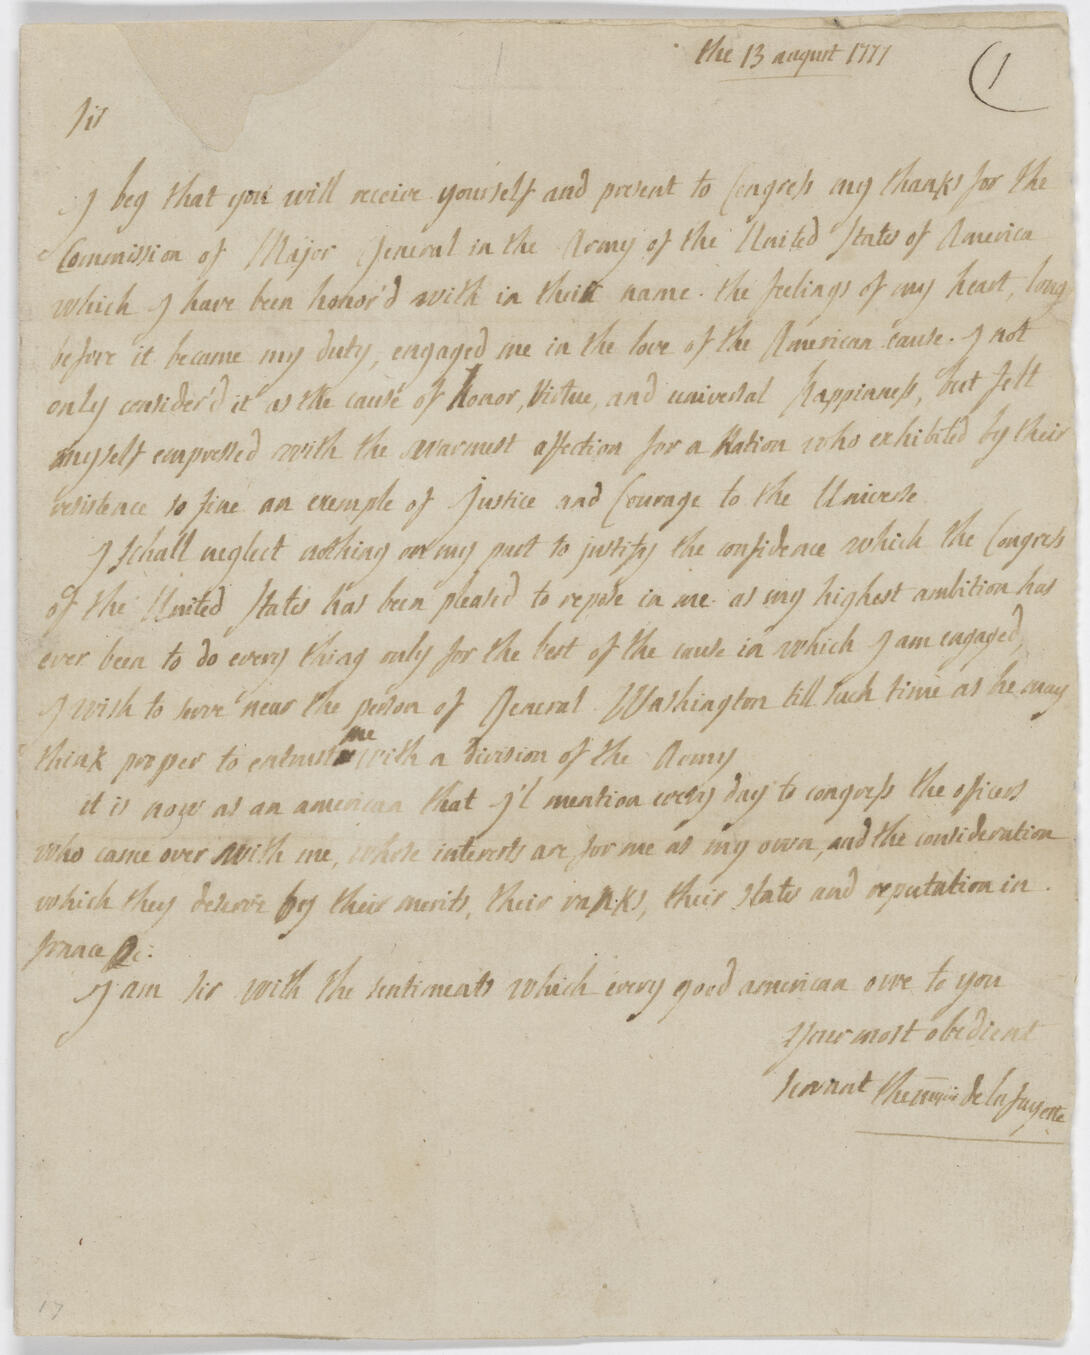 the 13 august 1777
(1
Sir
I beg that you will receive yourself and present to Congress my thanks for the
Commission of Major General in the Army of the United States of America
which I have been honor'd with in their name. the feelings of my heart, long
before it became my duty, engaged me in the love of the American cause. I not
only consider'd it as the cause of Honor, Virtue, and universal Happinness, but felt
myself empressed with the warmest affection for a Nation who exhibited by their
resistence so fine an exemple of Justice and Courage to the Universe
I schall neglect nothing on my part to justify the confidence which the Congress
of the United States has been pleased to repose in me as my highest ambition has
ever been to do every thing only for the best of the cause in which I am engaged,
I wish to serve near the person of General Washington till such time as he may
think proper to entrust me with a division of the Army
it is now as an american that I'l mention every day to congress the officers
who came over with me, whose interests are for me as my own, and the consideration
which they deserve by their merits, their ranks, their state and reputation in
france &c:
I am sir with the sentiments which every good american owe to you
your most obedient
servant the mquis de lafayette
17